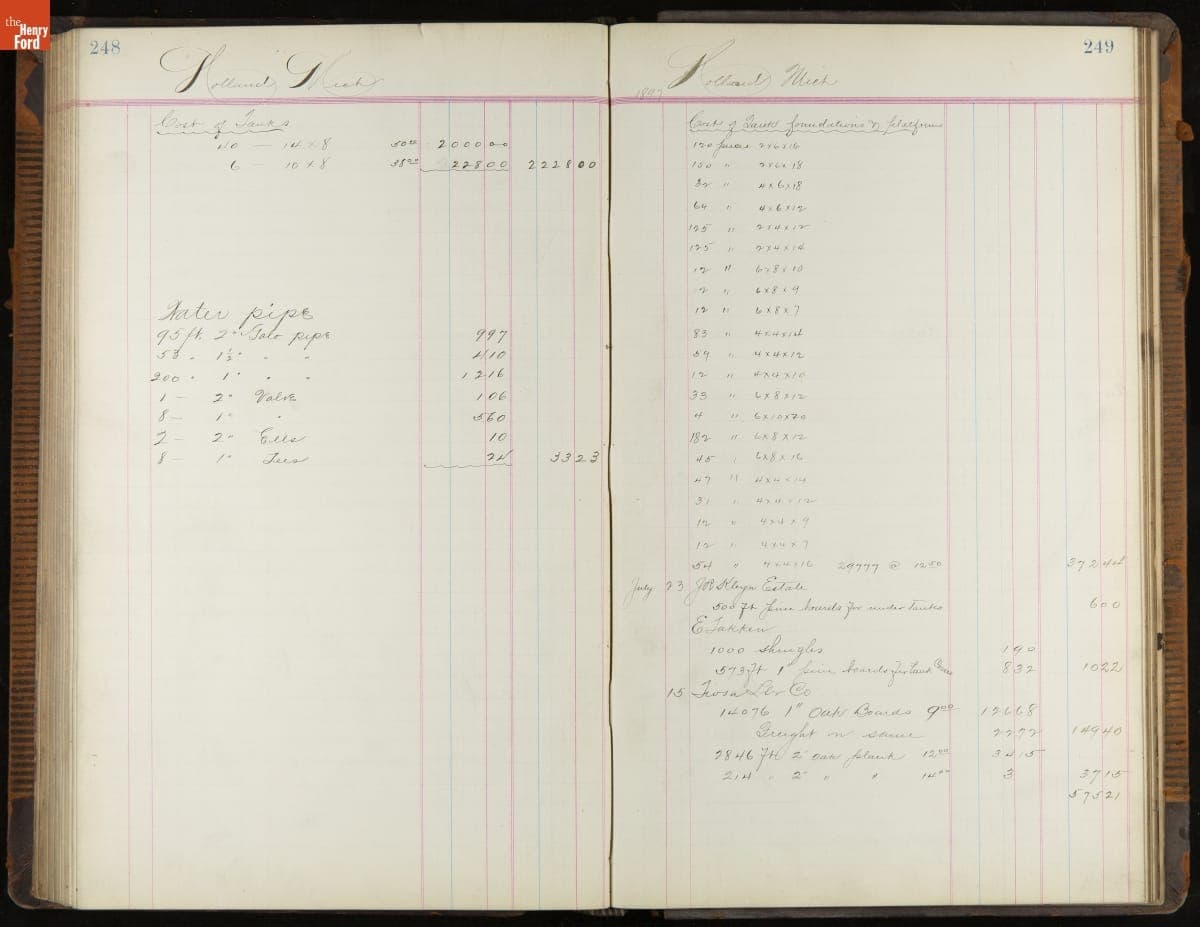 the
Henry
Ford
248
Holland Mich
Cost of Tanks
40 — 14 x 8 50 00 2000 00
6 — 10 x 8 38 00 228 00 2228 00
Water pipe
95 ft. 2" Galv pipe 9 97
53 " 1 1/2" " " 4 10
200 " 1" " " 12 16
1 — 2" Valve 1 06
8 — 1" " 5 60
2 — 2" Ells 10
8 — 1" Tees 24 33 23
249
Holland Mich
1897
Cost of Tank foundations & platforms
120 pieces 2x6x16
150 " 2x6x18
32 " 4x6x18
64 " 4x6x12
125 " 2x4x12
125 " 2x4x14
12 " 6x8x10
12 " 6x8x9
12 " 6x8x7
83 " 4x4x14
59 " 4x4x12
12 " 4x4x10
33 " 6x8x12
4 " 6x10x20
182 " 6x8x12
45 " 6x8x16
47 " 4x4x14
31 " 4x4x12
12 " 4x4x9
12 " 4x4x7
54 " 4x4x16 29777 @ 12 50 372 44
July 23 Kleyn Estate
500 ft pine boards for under tanks 6 00
E Takken
1000 Shingles 1 90
573 ft 1" pine boards for tank 8 32 10 22
15 Lbr Co
14076 1" Oak Boards 9 00 126 68
Freight on same 22 72 149 40
2846 ft 2" oak plank 12 00 34 15
214 " 2" " " 14 00 3 37 15
575 21